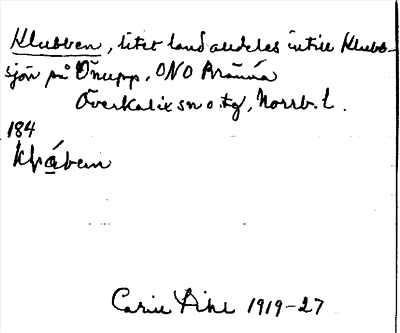 Klubben, litet land alldeles intill Klubb-
sjön på Önupp, ONO Bränna
Överkalix sn o. tg, Norrb. l.
184
Klǻben
Carin Pihl 1919-27